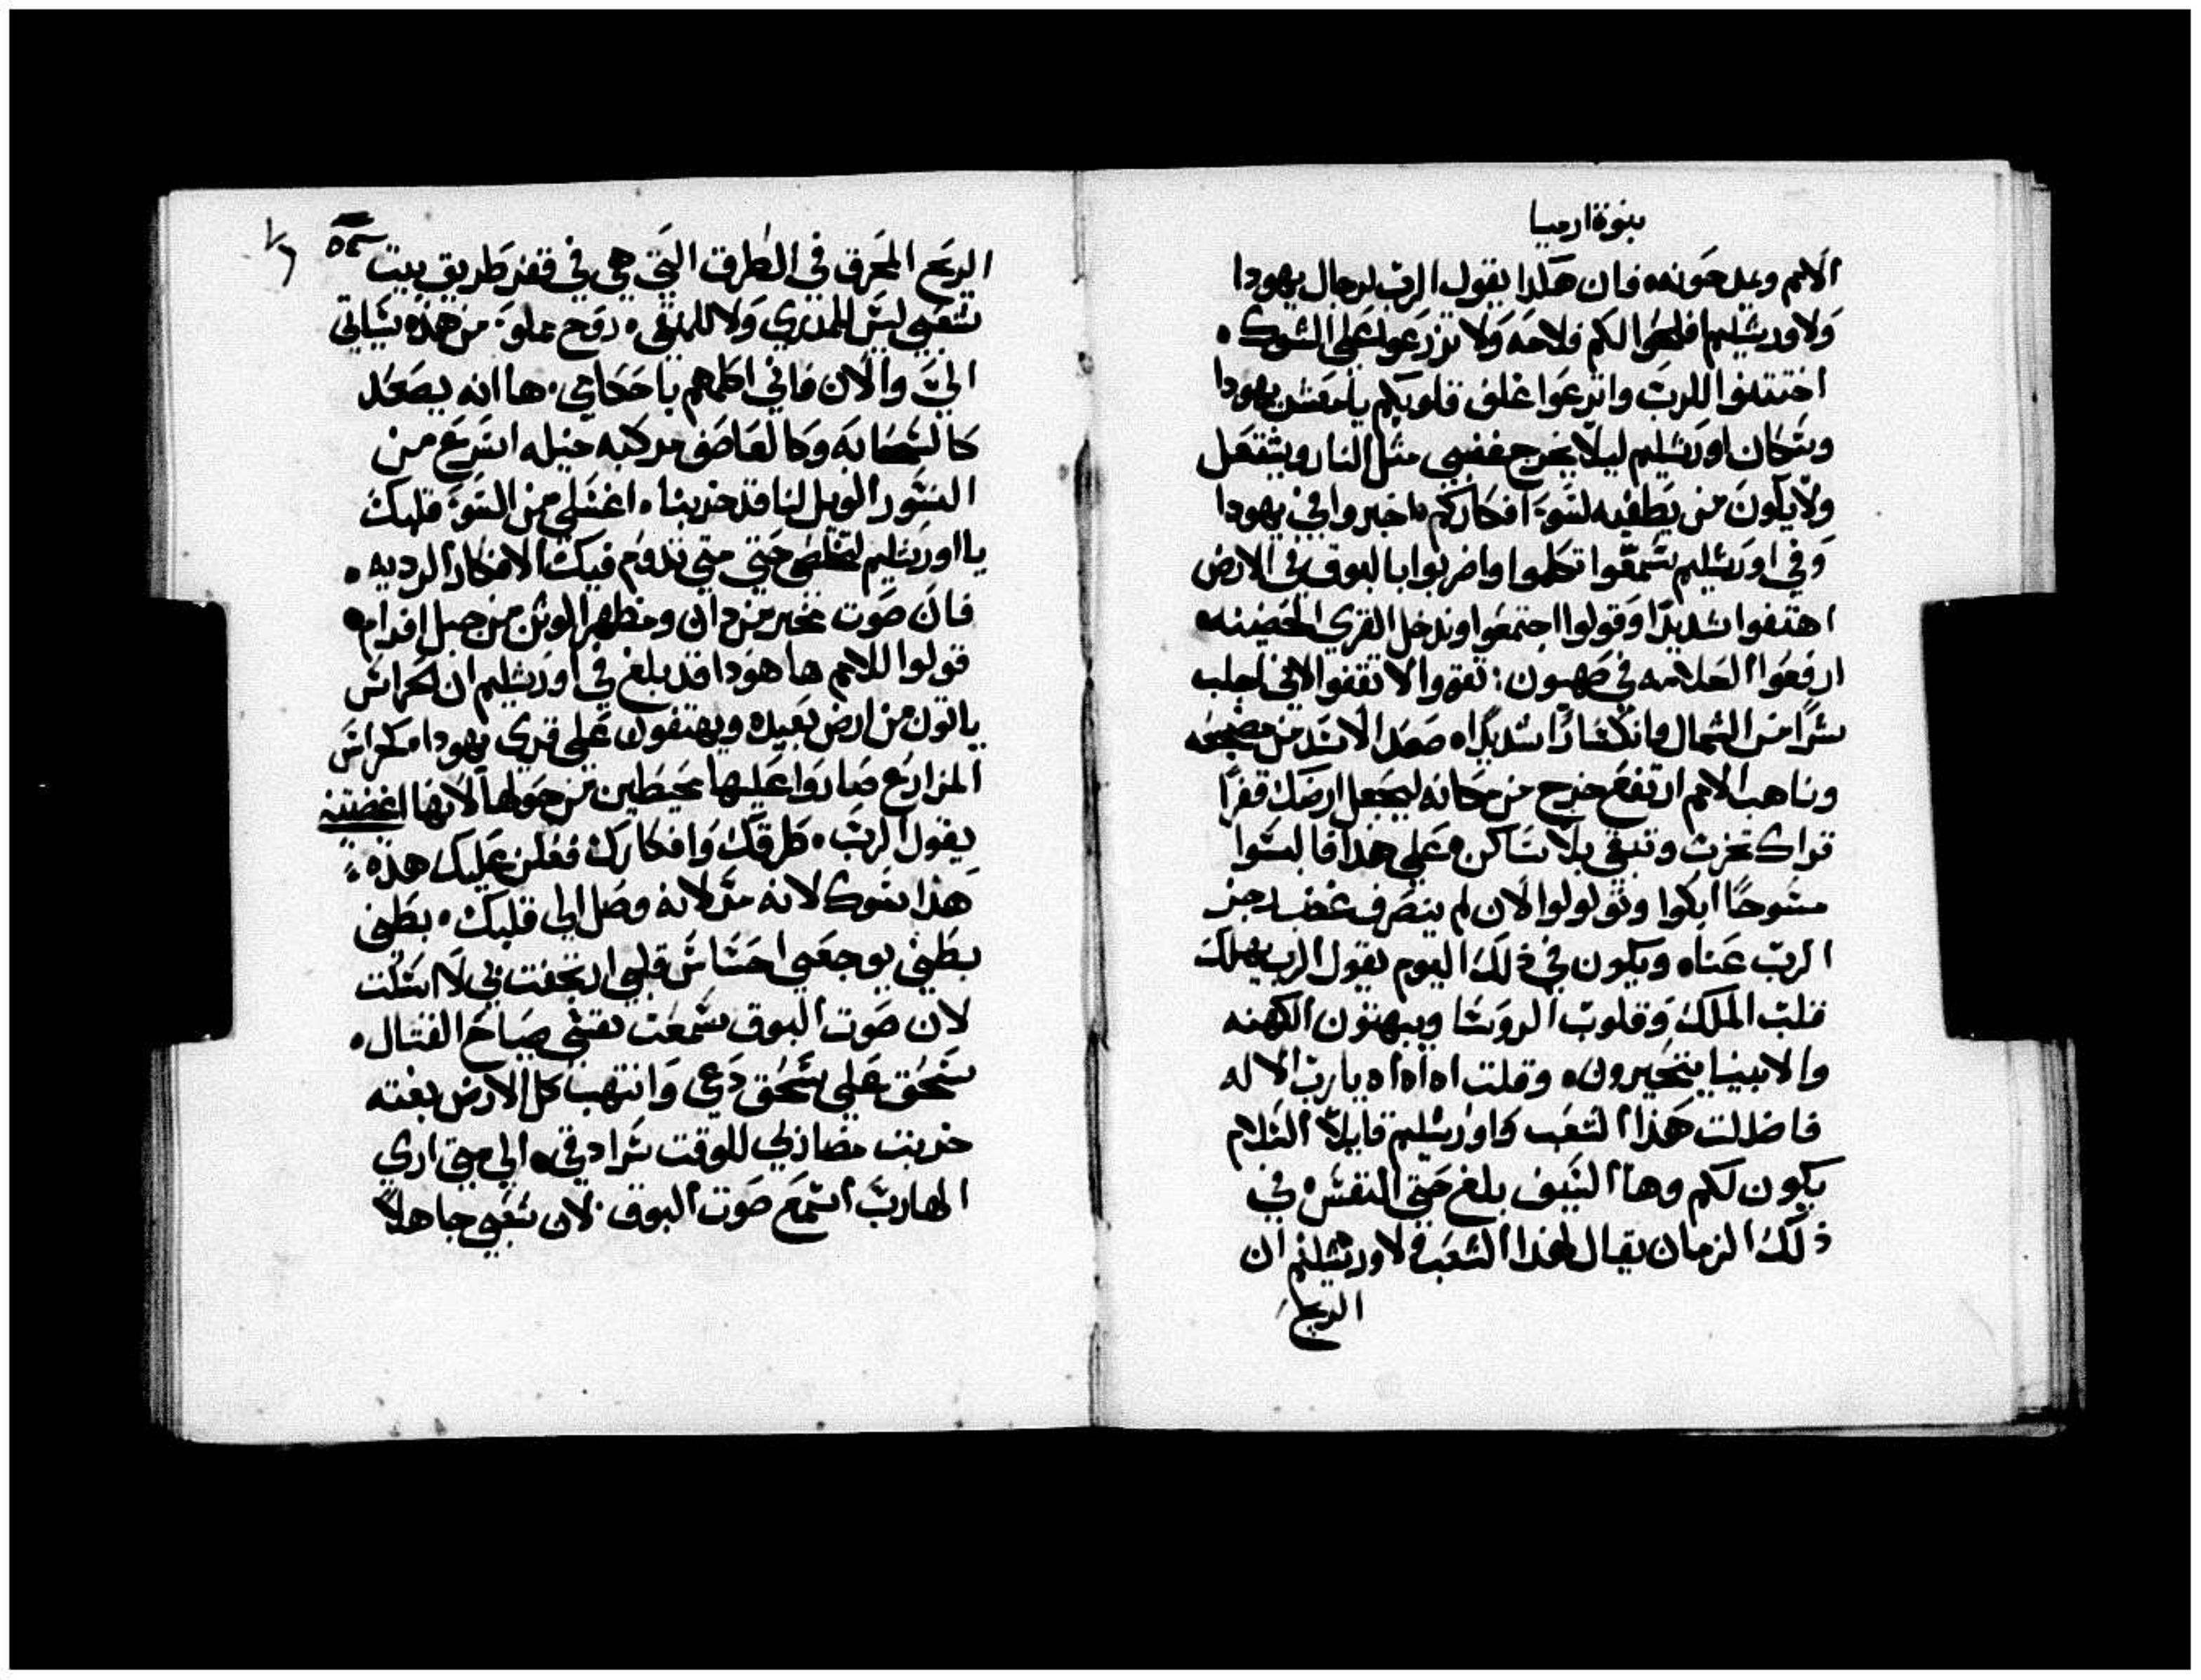 بنوة ارميا
الامم ويمدحونه فان هكذا يقول الرب لرجال يهودا
ولاورشليم افلحوا لكم فلاحه ولا تزرعوا على الشوك
اختتنوا للرب وانزعوا غلف قلوبكم يا معشر يهودا
وسكان اورشليم ليلا يخرج غضبي مثل النار ويشتعل
ولا يكون من يطفيه لسوء افكاركم اخبروا في يهودا
وفي اورشليم سمعوا تكلموا واضربوا بالبوق في الارض
اهتفوا شديدا وقولوا اجتمعوا وندخل القري الحصينه
ارفعوا العلامه في صهيون تقووا لا تقفوا لاني اجلب
شرا من الشمال وانكسارا شديدا صعد الاسد من مضجعه
وناهب الامم ارتفع خرج من مكانه ليجعل ارضك قفرا
قراك تخرب وتبقي بلا ساكن وعلي هذا فالبسوا
مسوحا ابكوا وتولولوا لان لم ينصرف غضب رجز
الرب عنا ويكون في ذلك اليوم يقول الرب يهلك
قلب الملك وقلوب الروسا ويبهتون الكهنه
والانبيا يتحيرون وقلت اه اه اه يا رب الاله
فاضللت هذا الشعب واورشليم قايلا السلام
يكون لكم وها السيف بلغ حتي النفس في
ذلك الزمان يقال لهذا الشعب ولاورشليم ان
الريح
الريح المحرق في الطرق التي هي في قفر طريق بيت
شعبي ليس للمدري ولا للنقي روح علو من هذه سياتي
الي والان فاني اكلمهم باحكامي ها انه يصعد
كالسحابه وكالعاصف مركبه خيله اسرع من
النسور الويل لنا قد خربنا اغسلي من السو قلبك
يا اورشليم لتخلصي حتي متي تدوم فيك الافكار الرديه
فان صوت مخبر من دان ومظهر الوثن من جبل افرام
قولوا للامم ها هوذا قد بلغ في اورشليم ان الحراس
ياتون من ارض بعيده ويهتفون علي قري يهودا كحراس
المزارع صاروا عليها محيطين من حولها لانها اغضبتني
يقول الرب طرقك وافكارك فعلن عليك هذه
هذا شوك لانه مر لانه وصل الي قلبك بطني
بطني يوجعني احساس قلبي ارتجفت في لا اسكت
لان صوت البوق سمعت نفسي صياح القتال
سحق علي سحق دعي وانتهب كل الارض بغته
خربت مضاربي للوقت سرادقي الي متي اري
الهارب اسمع صوت البوق لان شعبي جاهلا